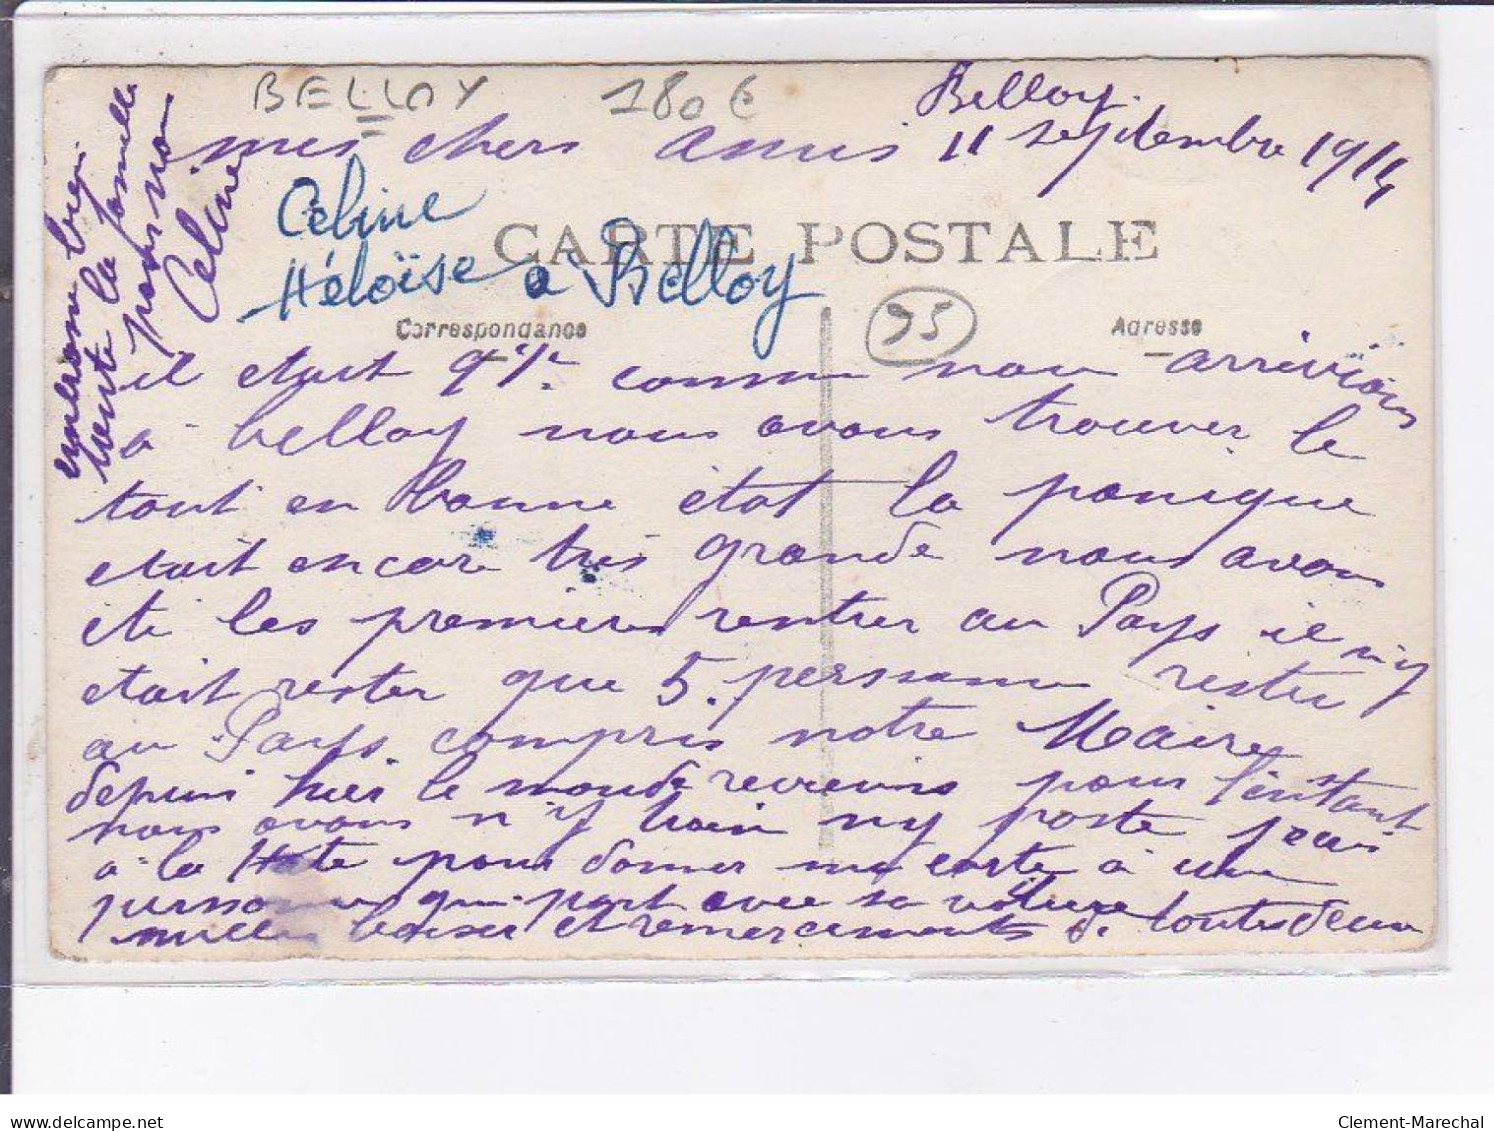 BELLOY 180 €
Belloy.
11 septembre 1914
mes chers Amis
Céline
Héloïse a Belloy
CARTE POSTALE
95
Correspondance
Adresse
il etait 9 h comme nous arrivions
a belloy nous avons trouver le
tout en bonne état la panique
etait encore très grande nous avons
été les premieres rentrer au Pays il n'y
etait rester que 5. personnes rester
au Pays compris notre Maire
depuis hier le monde reviens pour l'instant
nous avons n'y train ny poste j'ecris
a la Hate pour donner ma carte à une
personne qui part avec sa voiture
milles baiser et remerciements de toutes deux
embrassé bien
toute la famille
pour nous
Céline
delcampe.net
Clement-Marechal